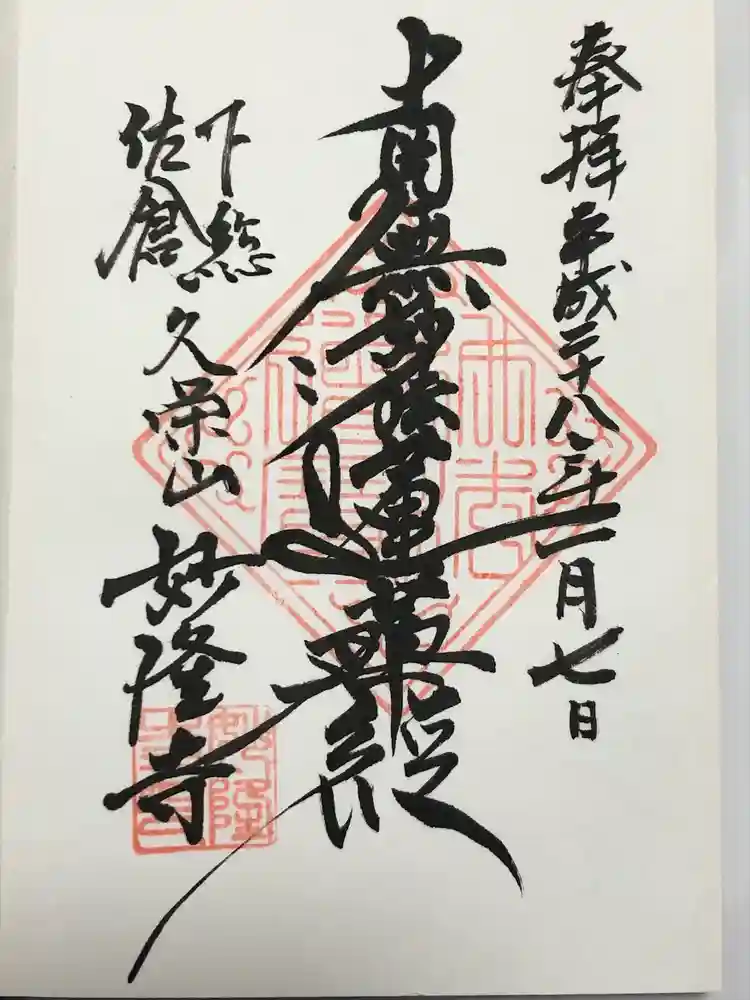 奉拝 平成二十八年一月七日
南無妙法蓮華経
下総
佐倉
久栄山 妙隆寺
妙隆